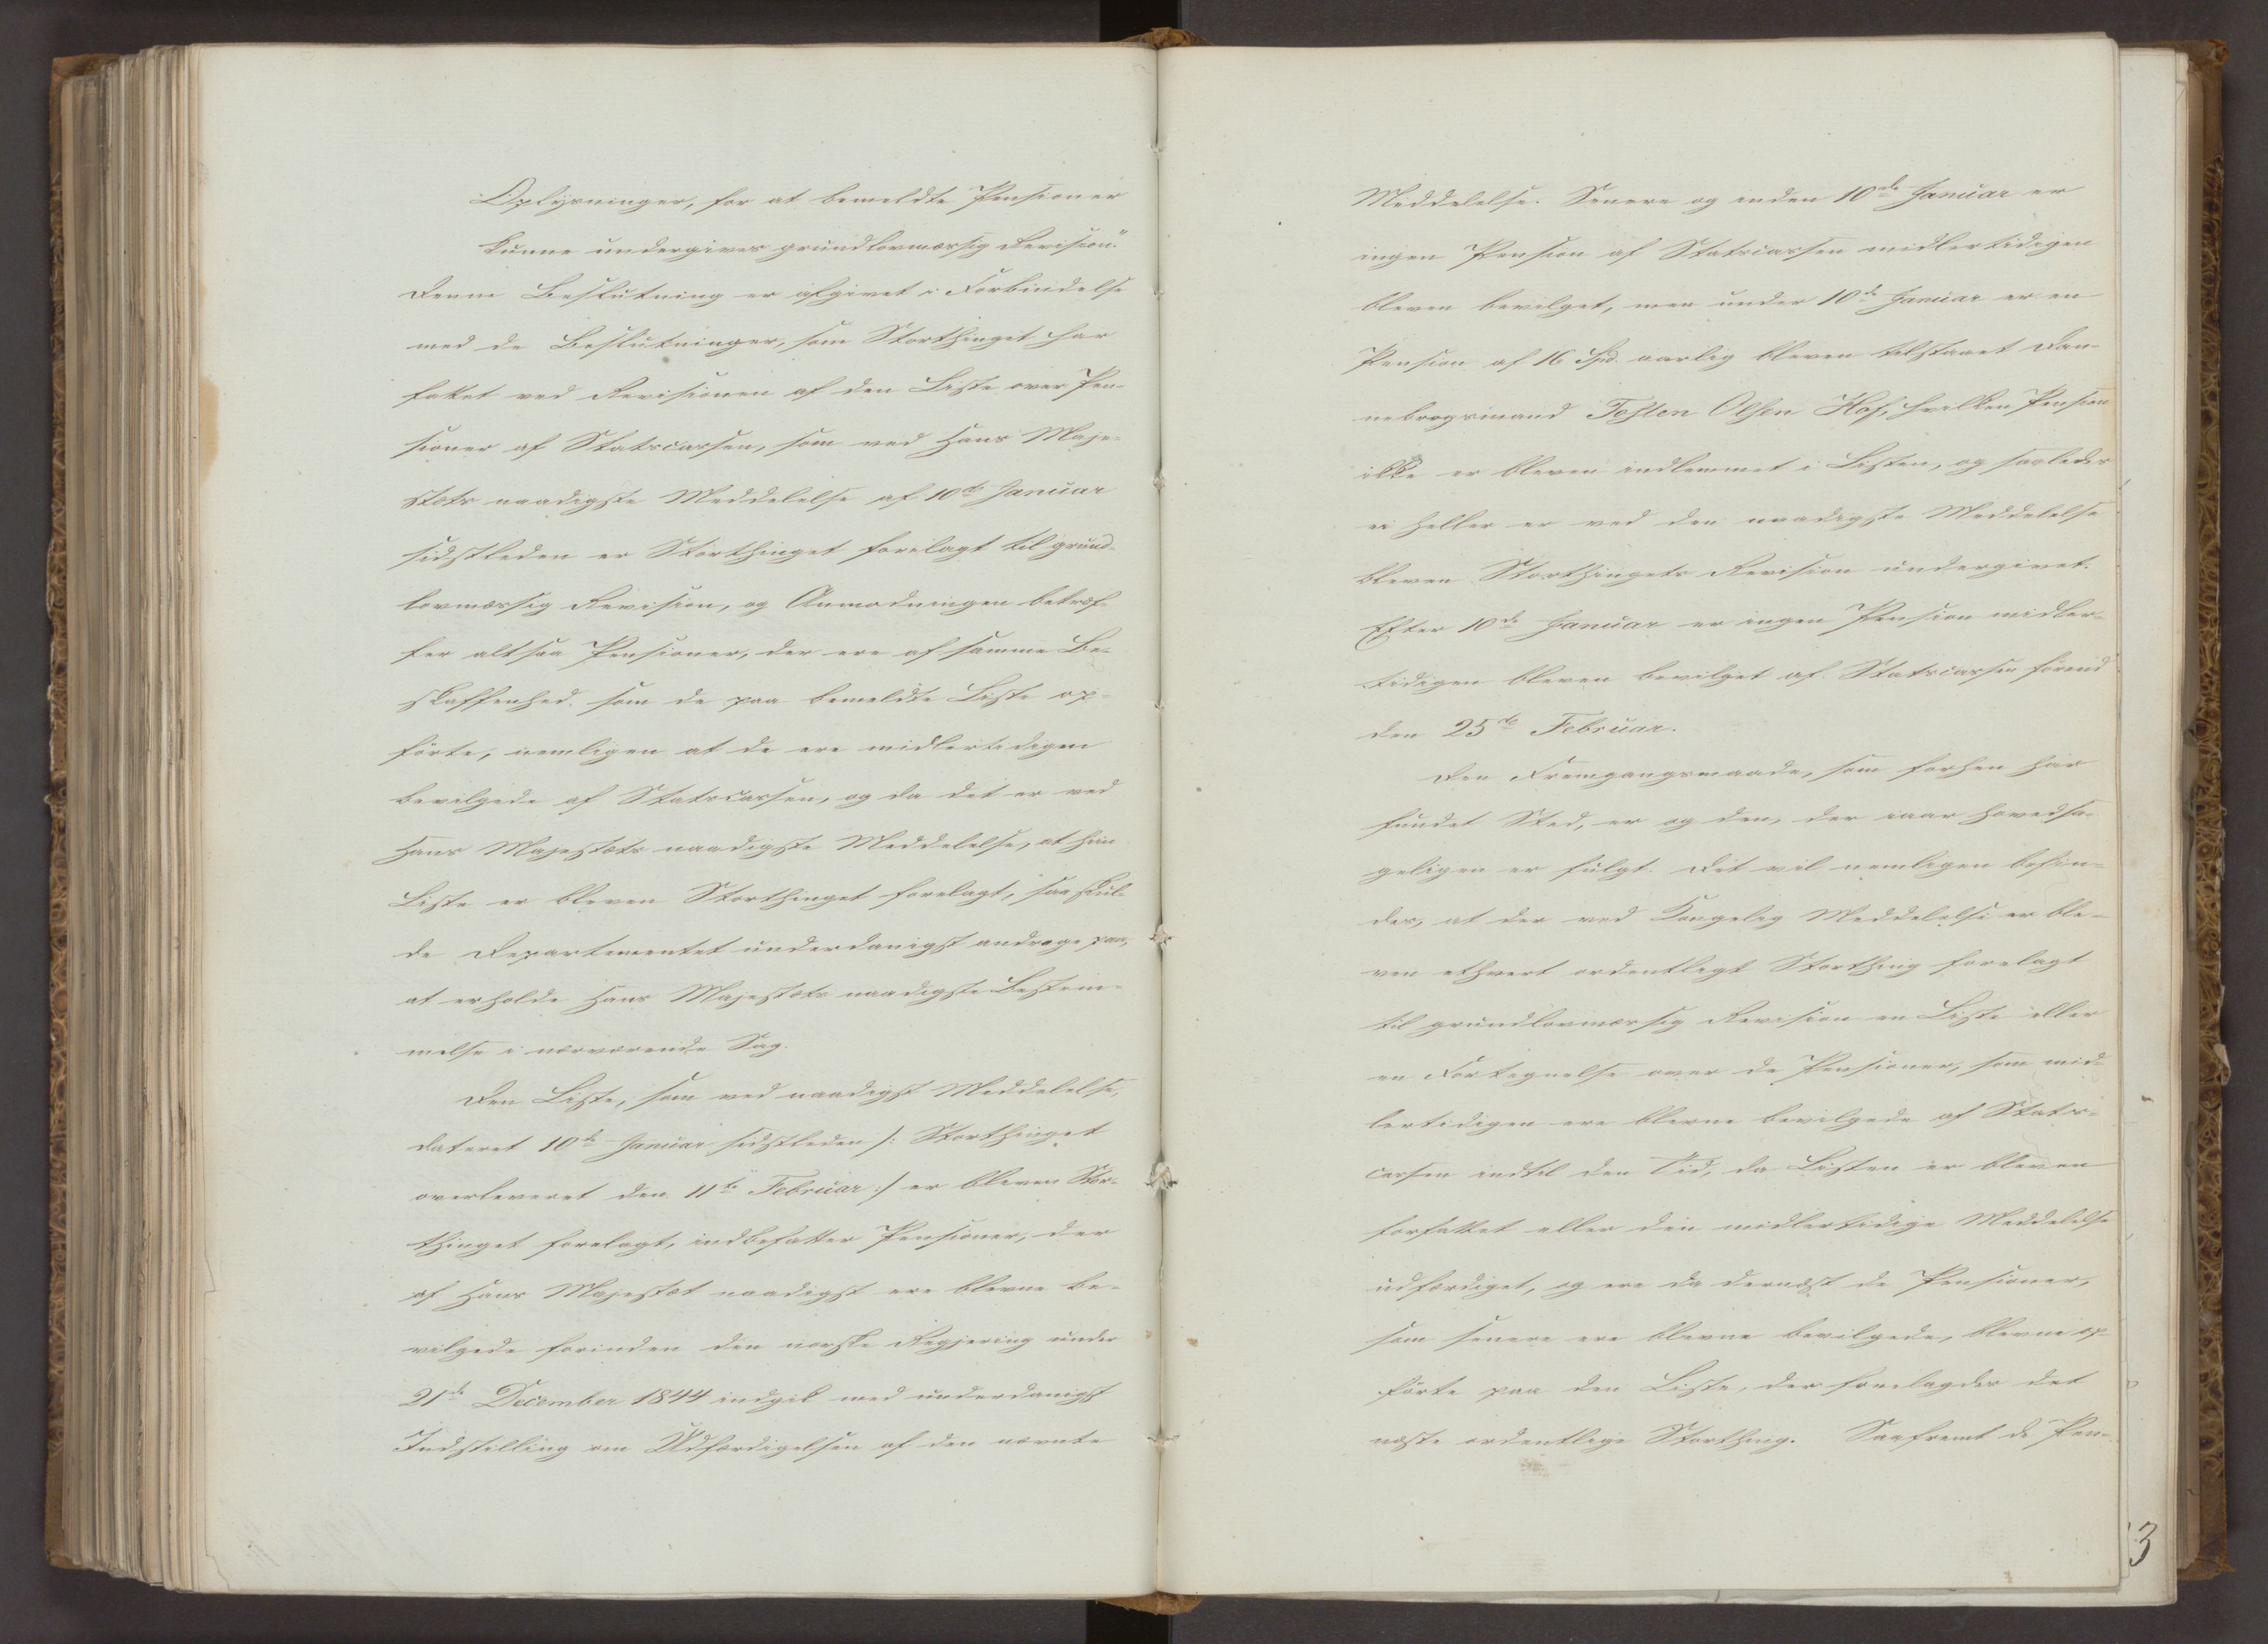 Oplysninger, for at bemeldte Pensioner
kunne undergives grundlovmæssig Revision."
Denne Beslutning er afgivet i Forbindelse
med de Beslutninger, som Storthinget har
fattet ved Revisionen af den Liste over Pen-
sioner af Statscassen, som ved Hans Maje-
stæts naadigste Meddelelse af 10de Januar
sidstleden er Storthinget forelagt til grund-
lovmæssig Revision, og Anmodningen betræf-
fer altsaa Pensioner, der ere af samme Be-
skaffenhed som de paa bemeldte Liste op-
förte, nemligen at de ere midlertidigen
bevilgede af Statscassen, og da det er ved
Hans Majestæts naadigste Meddelelse, at hiin
Liste er bleven Storthinget forelagt, saa skul-
de Departementet underdanigst andrage paa,
at erholde Hans Majestæts naadigste Bestem-
melse i nærværende Sag.
Den Liste, som ved naadigst Meddelelse,
dateret 10de Januar sidstleden /: Storthinget
overleveret den 11te Februar :/ er bleven Stor-
thinget forelagt, indbefatter Pensioner, der
af Hans Majestæt naadigst ere blevne be-
vilgede forinden den norske Regjering under
21de December 1844 indgik med underdanigst
Indstilling om Udfærdigelsen af den nævnte
Meddelelse. Senere og inden 10de Januar er
ingen Pension af Statscassen midlertidigen
bleven bevilget, men under 10de Januar er en
Pension af 16 Spd. aarlig bleven tilstaaet Dan-
nebrogsmand Tosten Olsen Hof, hvilken Pension
ikke er bleven indlemmet i Listen, og saaledes
ei heller er ved den naadigste Meddelelse
bleven Storthingets Revision undergivet.
Efter 10de Januar er ingen Pension midler-
tidigen bleven bevilget af Statscassen förend
den 25de Februar.
Den Fremgangsmaade, som forhen har
fundet Sted, er og den, der iaar hovedsa-
geligen er fulgt. Det vil nemligen befin-
des, at der ved Kongelig Meddelelse er ble-
ven ethvert ordentligt Storthing forelagt
til grundlovmæssig Revision en Liste eller
en Fortegnelse over de Pensioner, som mid-
lertidigen ere blevne bevilgede af Stats-
cassen indtil den Tid, da Listen er bleven
forfattet eller den midlertidige Meddelelse
udfærdiget, og ere da dernæst de Pensioner,
som senere ere blevne bevilgede, blevne op-
förte paa den Liste, der forelagdes det
næste ordentlige Storthing. Saafremt de Pen-
3